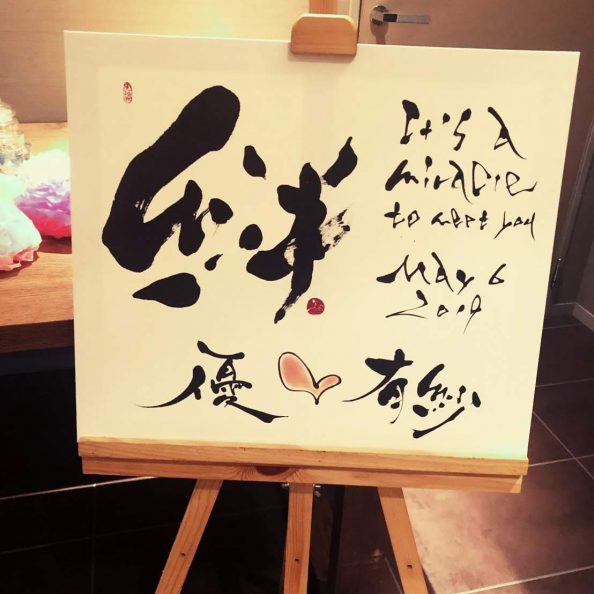 絆
It's a
miracle
to meet you
May 6
2019
優 有紗